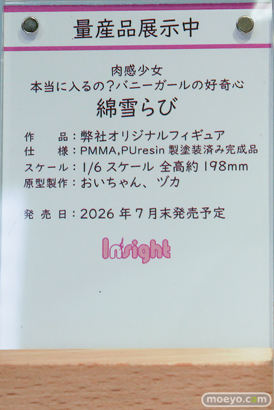 量産品展示中
肉感少女
本当に入るの?バニーガールの好奇心
綿雪らび
作　品：弊社オリジナルフィギュア
仕　様：PMMA,PUresin 製塗装済み完成品
スケール：1/6 スケール 全高約 198mm
原型製作：おいちゃん、ヅカ
発 売 日：2026 年 7 月末発売予定
Insight
moeyo.com